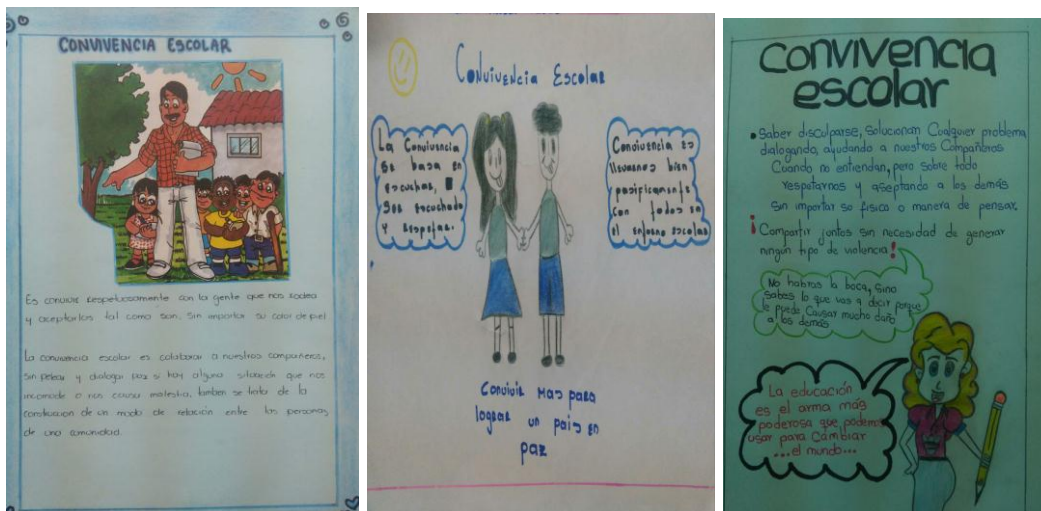 CONVIVENCIA ESCOLAR
Es convivir respetuosamente con la gente que nos rodea
y aceptarlos tal como son, sin importar su color de piel
La convivencia escolar es colaborar a nuestros compañeros,
sin pelear y dialogar si hay alguna situación que nos
incomode o nos causa molestia, tambien se trata de la
construccion de un modo de relación entre las personas
de una comunidad.
Convivencia Escolar
La Convivencia
se basa en
escuchar,
ser escuchado
y respetar.
Convivencia es
llevarnos bien
pasificamente
con todos en
el entorno escolar
Convivir mas para
lograr un pais en
paz
Convivencia
escolar
• Saber disculparse, solucionan cualquier problema
dialogando, ayudando a nuestros Compañeros
Cuando no entiendan, pero sobre todo
respetarnos y aseptando a los demás
sin importar so fisico o manera de pensar.
¡Compartir juntos sin necesidad de generar
ningún tipo de violencia!
No habras la boca, sino
sabes lo que vas a decir porque
le puede Causar mucho daño
a los demás
La educación
es el arma más
poderosa que podemos
usar para Cambiar
...el mundo...